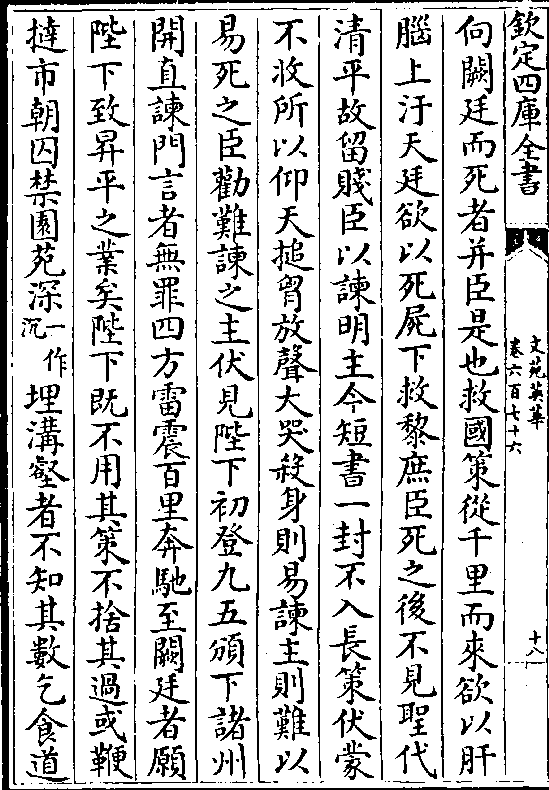 欽定四庫全書
文苑英華
卷六百七十六
十八
向闕廷而死者并臣是也救國策從千里而來欲以肝
腦上汙天廷欲以死屍下救黎庶臣死之後不見聖代
清平故留賤臣以諫明主今短書一封不入長策伏蒙
不收所以仰天搥胷放聲大哭殺身則易諫主則難以
易死之臣勸難諫之主伏見陛下初登九五頒下諸州
開直諫門言者無罪四方雷震百里奔馳至闕廷者願
陛下致昇平之業矣陛下既不用其策不捨其過或鞭
撻市朝囚禁園苑深一作沉埋溝壑者不知其數乞食道